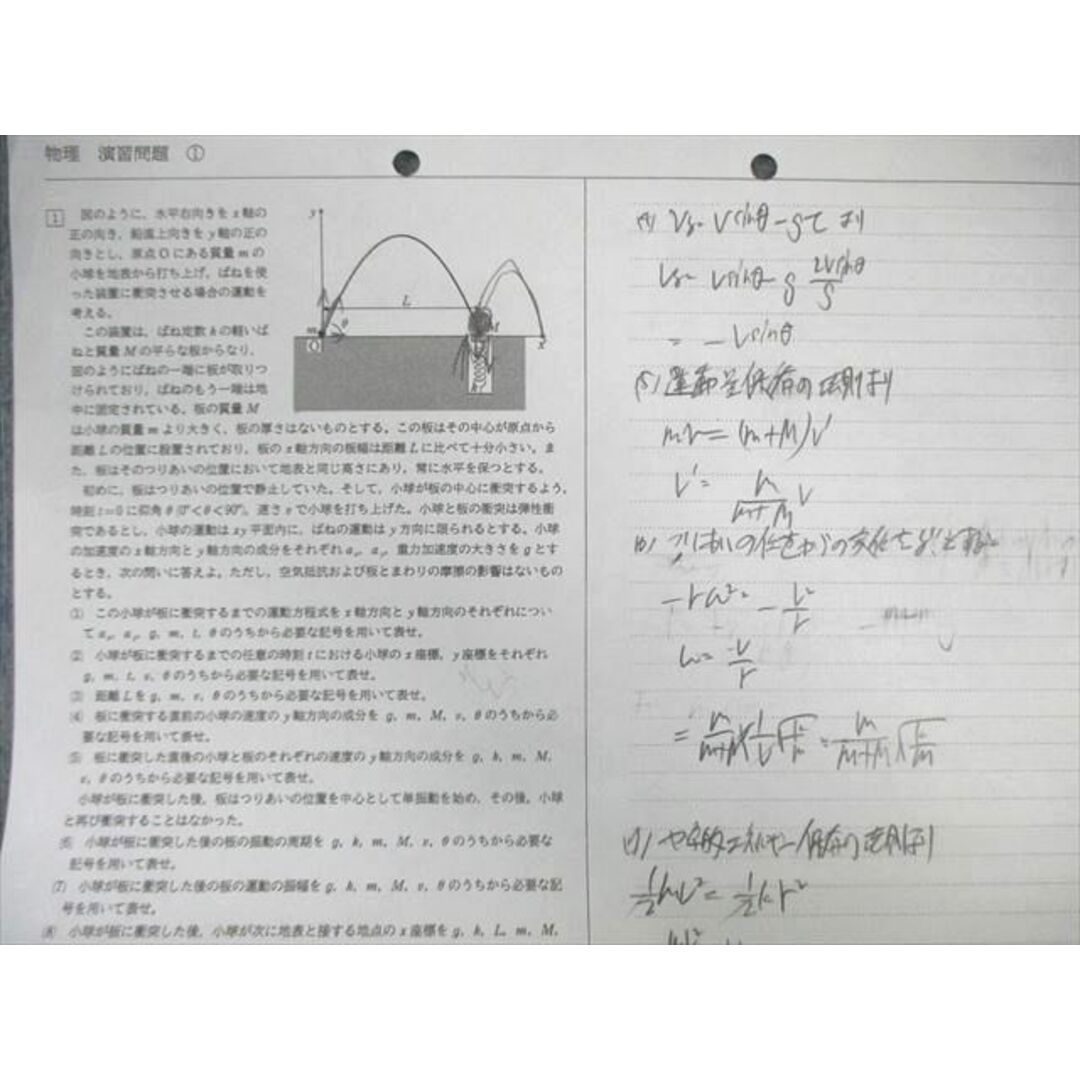 物理 演習問題 ①
1 図のように，水平右向きを x 軸の
正の向き，鉛直上向きを y 軸の正の
向きとし，原点 O にある質量 m の
小球を地表から打ち上げ，ばねを使
った装置に衝突させる場合の運動を
考える。
この装置は，ばね定数 k の軽いば
ねと質量 M の平らな板からなり，
図のようにばねの一端に板が取りつ
けられており，ばねのもう一端は地
中に固定されている。板の質量 M
は小球の質量 m より大きく，板の厚さはないものとする。この板はその中心が原点から
距離 L の位置に設置されており，板の x 軸方向の板幅は距離 L に比べて十分小さい。ま
た，板はそのつりあいの位置において地表と同じ高さにあり，常に水平を保つとする。
初めに，板はつりあいの位置で静止していた。そして，小球が板の中心に衝突するよう，
時刻 t=0 に仰角 θ (0°<θ<90°)，速さ v で小球を打ち上げた。小球と板の衝突は弾性衝
突であるとし，小球の運動は xy 平面内に，ばねの運動は y 方向に限られるとする。小球
の加速度の x 軸方向と y 軸方向の成分をそれぞれ ax，ay，重力加速度の大きさを g とす
るとき，次の問いに答えよ。ただし，空気抵抗および板とまわりの摩擦の影響はないもの
とする。
① この小球が板に衝突するまでの運動方程式を x 軸方向と y 軸方向のそれぞれについ
て ax，ay，g，m，t，θ のうちから必要な記号を用いて表せ。
② 小球が板に衝突するまでの任意の時刻 t における小球の x 座標，y 座標をそれぞれ
g，m，t，v，θ のうちから必要な記号を用いて表せ。
③ 距離 L を g，m，v，θ のうちから必要な記号を用いて表せ。
④ 板に衝突する直前の小球の速度の y 軸方向の成分を g，m，M，v，θ のうちから必
要な記号を用いて表せ。
⑤ 板に衝突した直後の小球と板のそれぞれの速度の y 軸方向の成分を g，k，m，M，
v，θ のうちから必要な記号を用いて表せ。
小球が板に衝突した後，板はつりあいの位置を中心として単振動を始め，その後，小球
と再び衝突することはなかった。
⑥ 小球が板に衝突した後の板の振動の周期を g，k，m，M，v，θ のうちから必要な
記号を用いて表せ。
⑦ 小球が板に衝突した後の板の運動の振幅を g，k，m，M，v，θ のうちから必要な記
号を用いて表せ。
⑧ 小球が板に衝突した後，小球が次に地表と接する地点の x 座標を g，k，L，m，M，
y
L
θ
m
M
O
x
(4) Vy= Vsinθ-gt より
Vy= Vsinθ-g 2Vsinθ/g
= -Vsinθ
(5) 運動量保存の法則より
mv=(m+M)v'
v'= m/(m+M) v
(7) 力学的エネルギー保存の法則より
1/2 mv²= 1/2 kr²